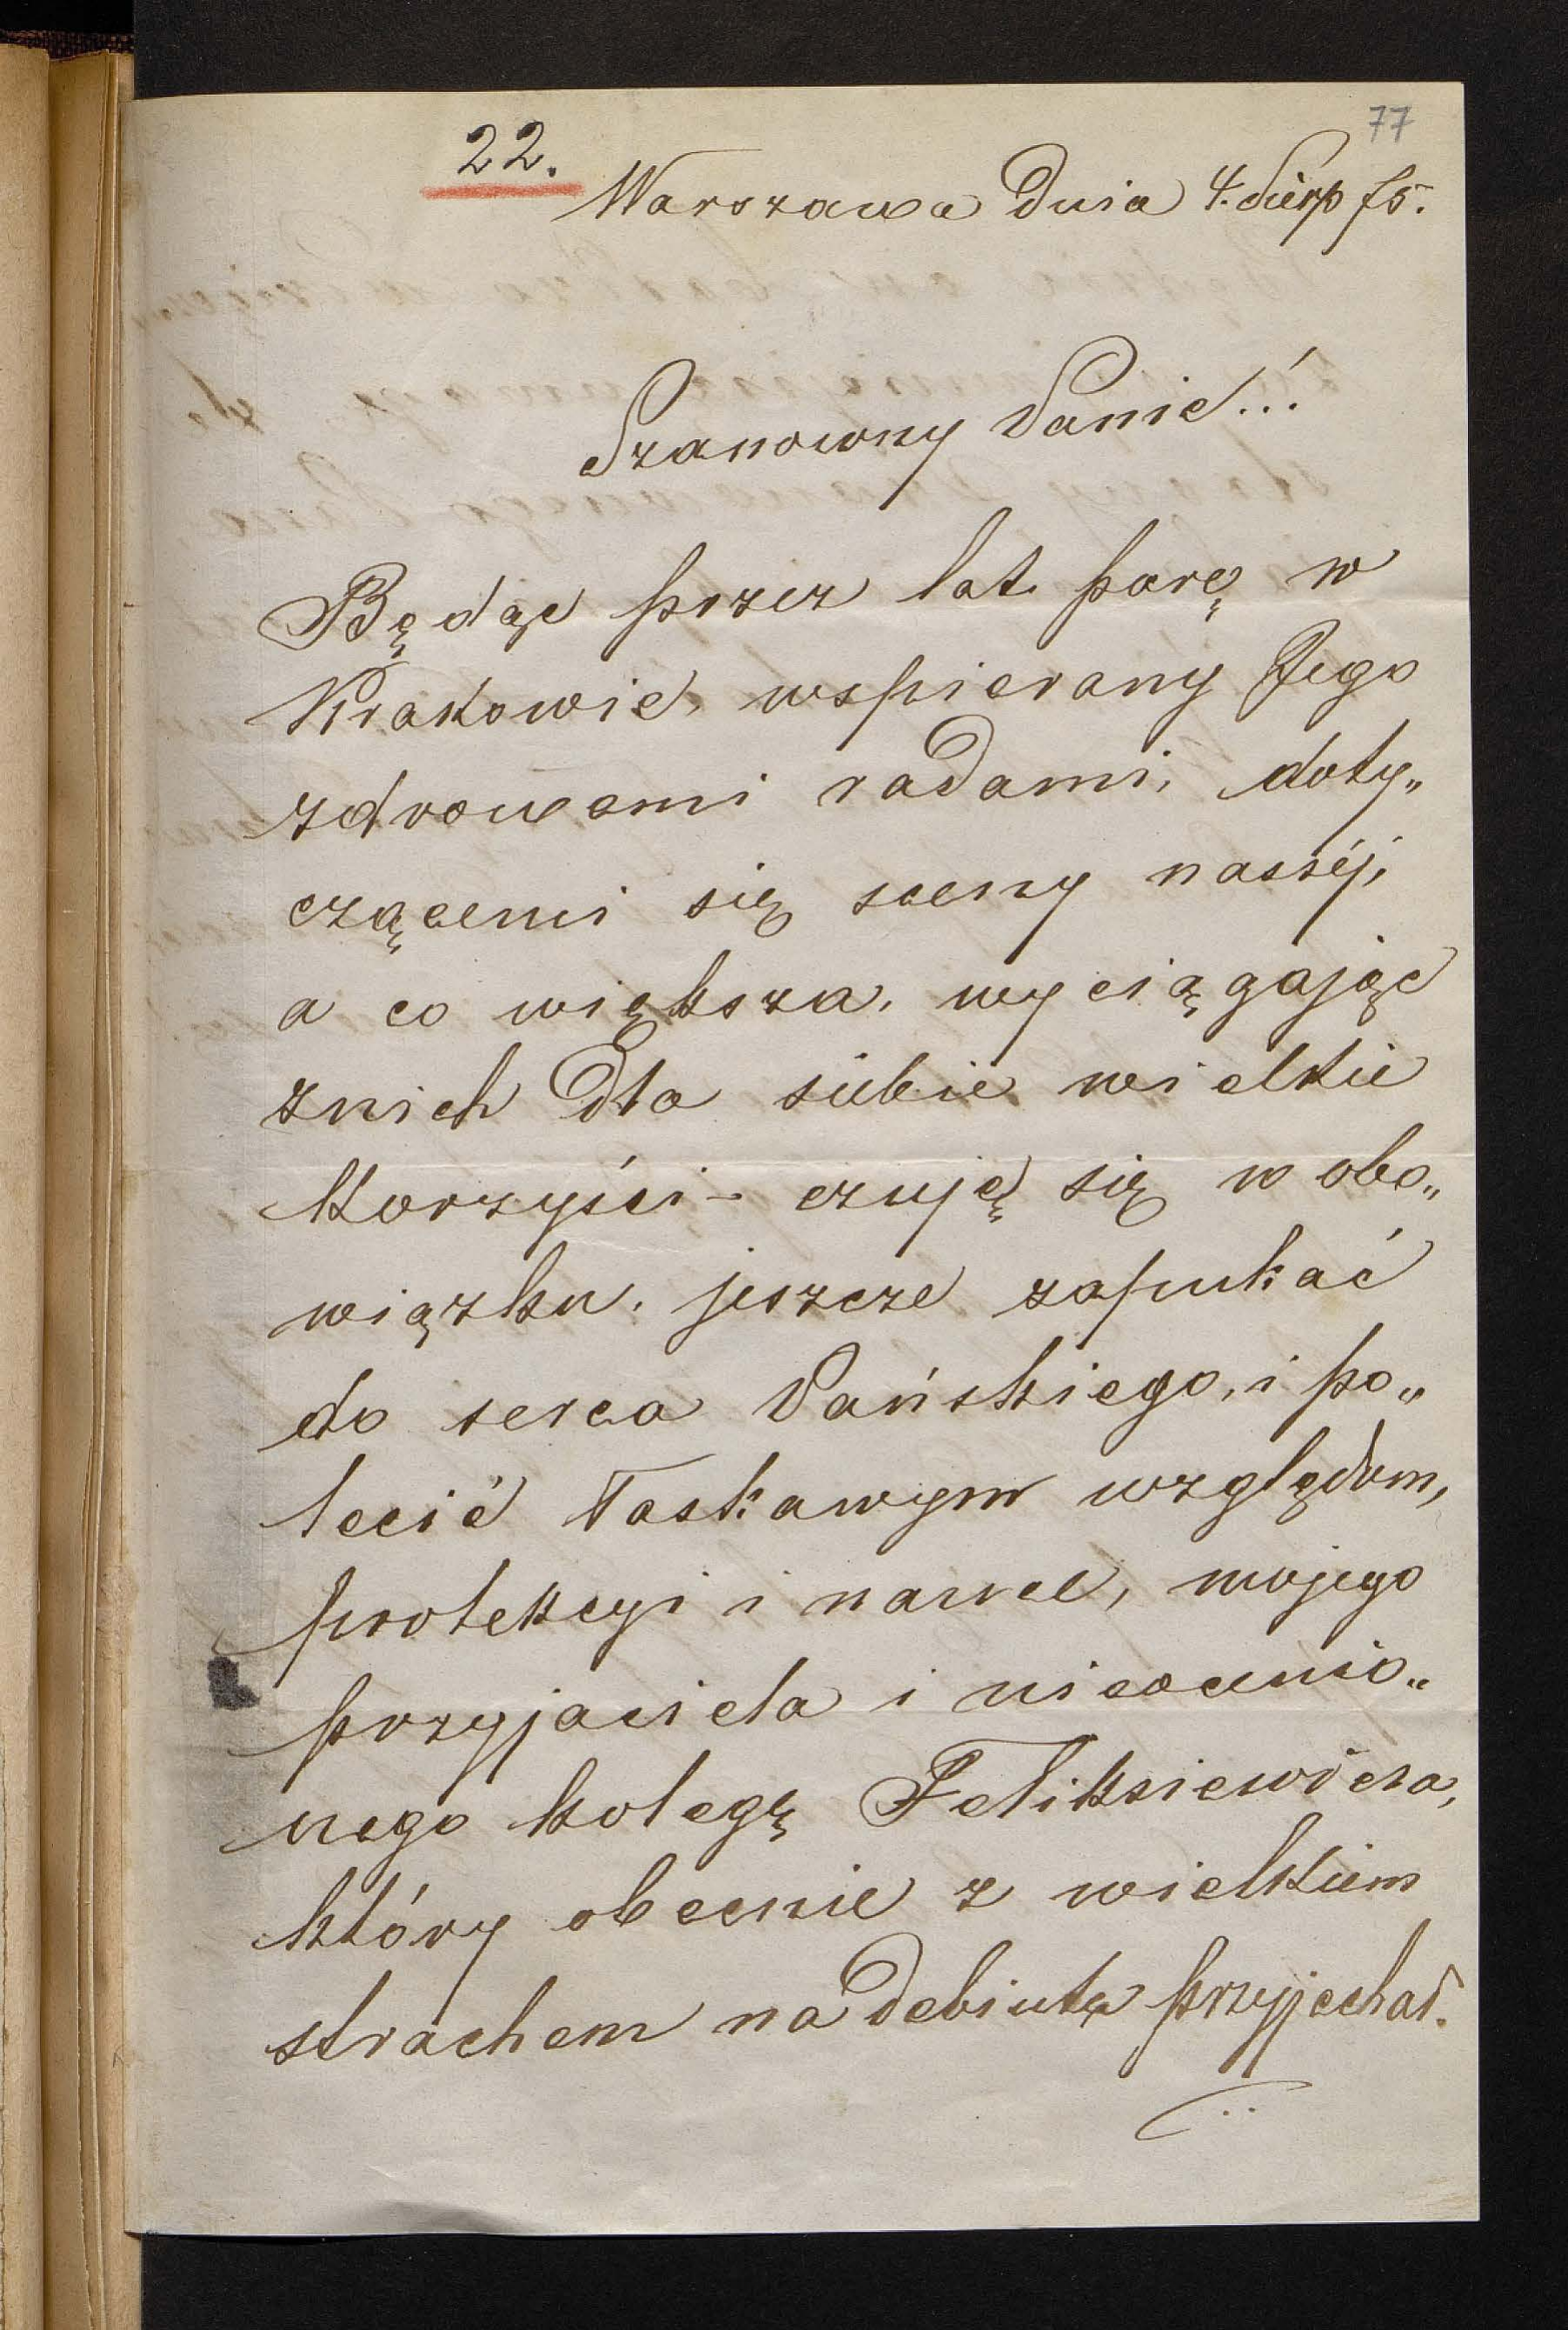 77
22.
Warszawa Dnia 4. Sierp 75.
Szanowny Panie!!
Będąc przez lat parę w
Krakowie, wspierany Jego
zdrowemi radami, doty„
czącemi się sceny naszéj,
a co większa, wyciągając
znich dla siebie wielkie
korzyści – czuję się w obo„
wiązku, jeszcze zapukać
do serca Pańskiego, i po„
lecić łaskawym względom,
protekcyi i nawet, mojego
przyjaciela i nieocenio„
nego kolegę Feliksiewicza,
który obecnie z wielkiem
strachem na debiuta przyjechał.